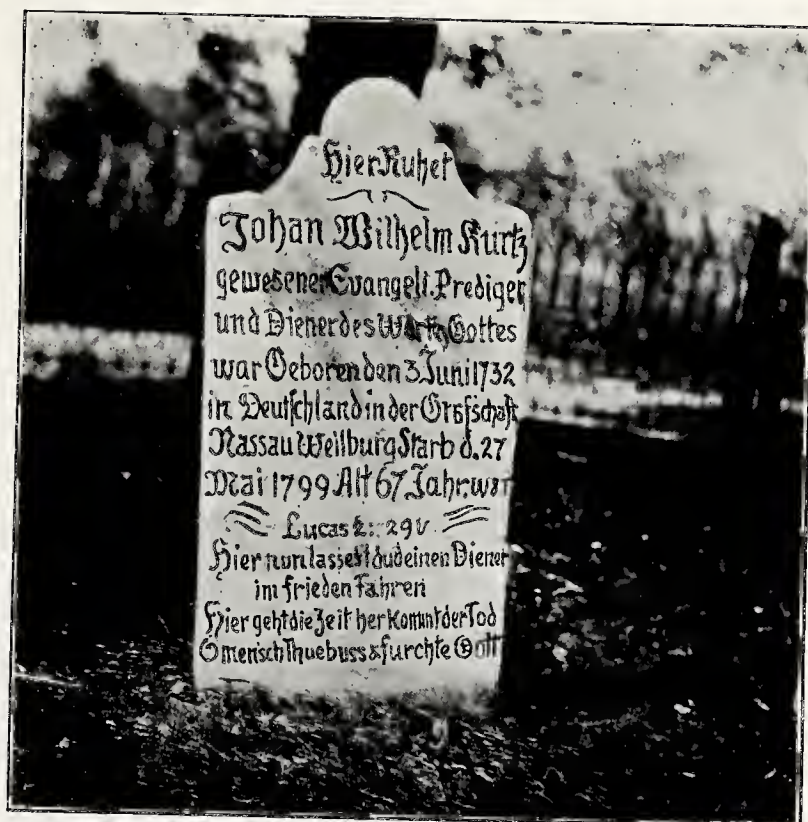 Hier Ruhet
Johan Wilhelm Kurtz
gewesener Evangeli. Prediger
und Diener des Worts Gottes
war Geboren den 3. Juni 1732
in Deutschland in der Grafschaft
Nassau Weilburg Starb d. 27
Mai 1799 Alt 67 Jahr. war
Lucas 2: 29 V
Hier nun lassest du deinen Diener
im frieden Fahren
Hier geht die Zeit her komt der Tod
O mensch Thue buss & furchte Gott